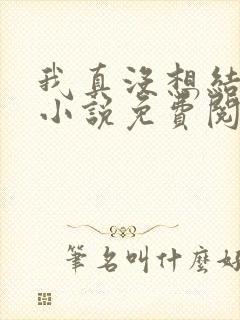 我真没想結
小說免費閱
筆名叫什麼好